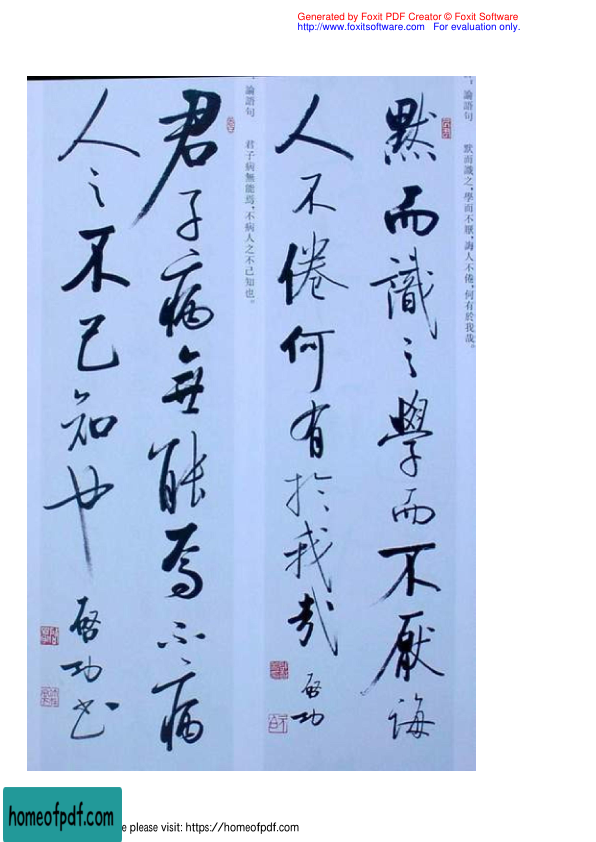 Generated by Foxit PDF Creator © Foxit Software
http://www.foxitsoftware.com For evaluation only.
論語句 默而識之，學而不厭，誨人不倦，何有於我哉。
默而識之學而不厭誨
人不倦何有於我哉
啟功
論語句 君子病無能焉，不病人之不己知也。
君子病無能焉不病
人之不己知也
啟功書
homeofpdf.com
e please visit: https://homeofpdf.com